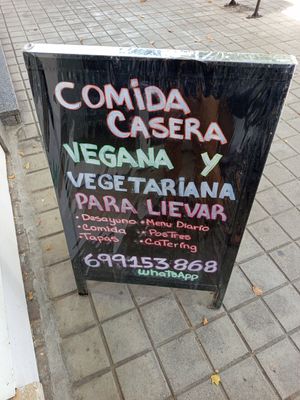 COMiDA
CASERA
VEGANA Y
VEGETARiANA
PARA LLEVAR
• Desayuno • Menu Diario
• Comida • Postres
• Tapas • Catering
699153868
WhatsApp